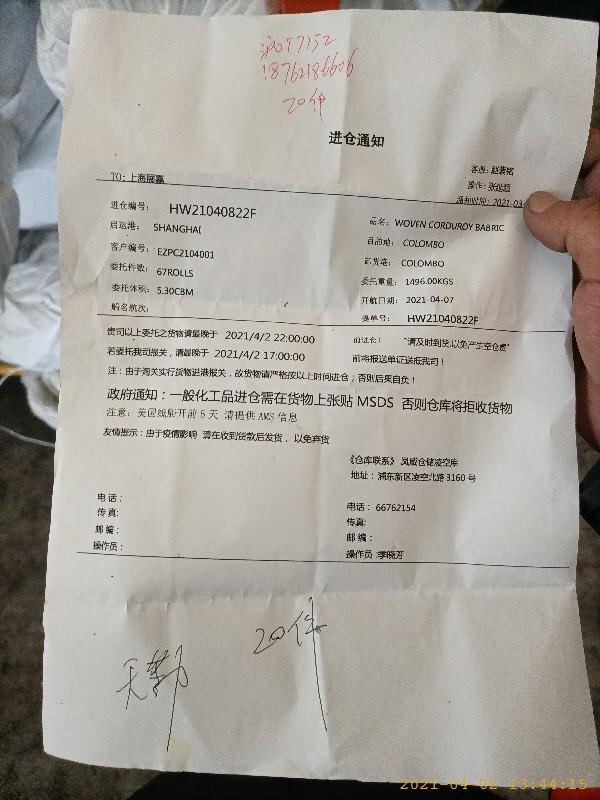 18762186606
20件
进仓通知
TO: 上海展嘉
操作: 张延超
通知时间: 2021-03
进仓编号: HW21040822F
品名: WOVEN CORDUROY BABRIC
启运港: SHANGHAI
目的地: COLOMBO
客户编号: EZPC2104001
卸货港: COLOMBO
委托件数: 67ROLLS
委托重量: 1496.00KGS
委托体积: 5.30CBM
开航日期: 2021-04-07
船名航次:
提单号: HW21040822F
贵司以上委托之货物请最晚于 2021/4/2 22:00:00 前进仓! "请及时到货,以免产生空仓费"
若委托我司报关,请最晚于 2021/4/2 17:00:00 前将报送单证送抵我司!
注:由于海关实行货物进港报关,故货物请严格按以上时间进仓;否则后果自负!
政府通知:一般化工品进仓需在货物上张贴 MSDS 否则仓库将拒收货物
注意: 美国线船开前 5 天 请提供 AMS 信息
友情提示:由于疫情影响 请在收到货款后发货,以免弃货
《仓库联系》 凤威仓储凌空库
地址:浦东新区凌空北路 3160 号
电话:
电话:66762154
传真:
传真:
邮编:
邮编:
操作员:
操作员:李晓芳
天勤
20件
2021-04-02 13:44:15